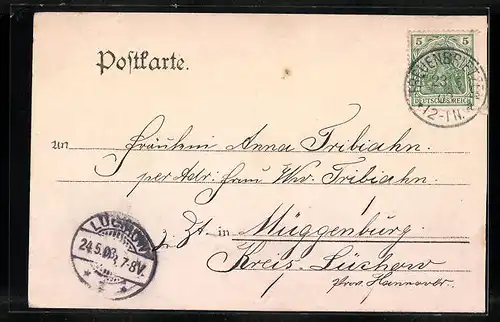 Postkarte.
5 5
DEUTSCHES REICH
TREUENBRIETZEN
23
03
*12-1N.*
An Fräulein Anna Tribiahn.
per Adr. Frau Ww. Tribiahn.
z. Zt. in Müggenburg
Kreis Lüchow
Prov. Hannover.
LÜCHOW
24.5.03
7-8V.